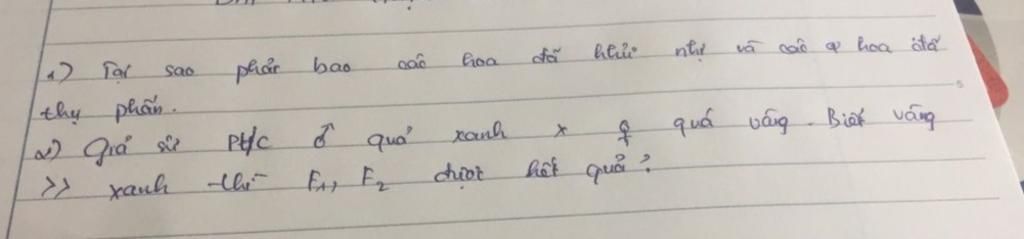 1) Tại sao phải bao các hoa đã khử nhị và các ♀ hoa đã
thụ phấn.
2) Giả sử Pt/c ♂ quả xanh x ♀ quả vàng. Biết vàng
>> xanh thì F1, F2 được kết quả?